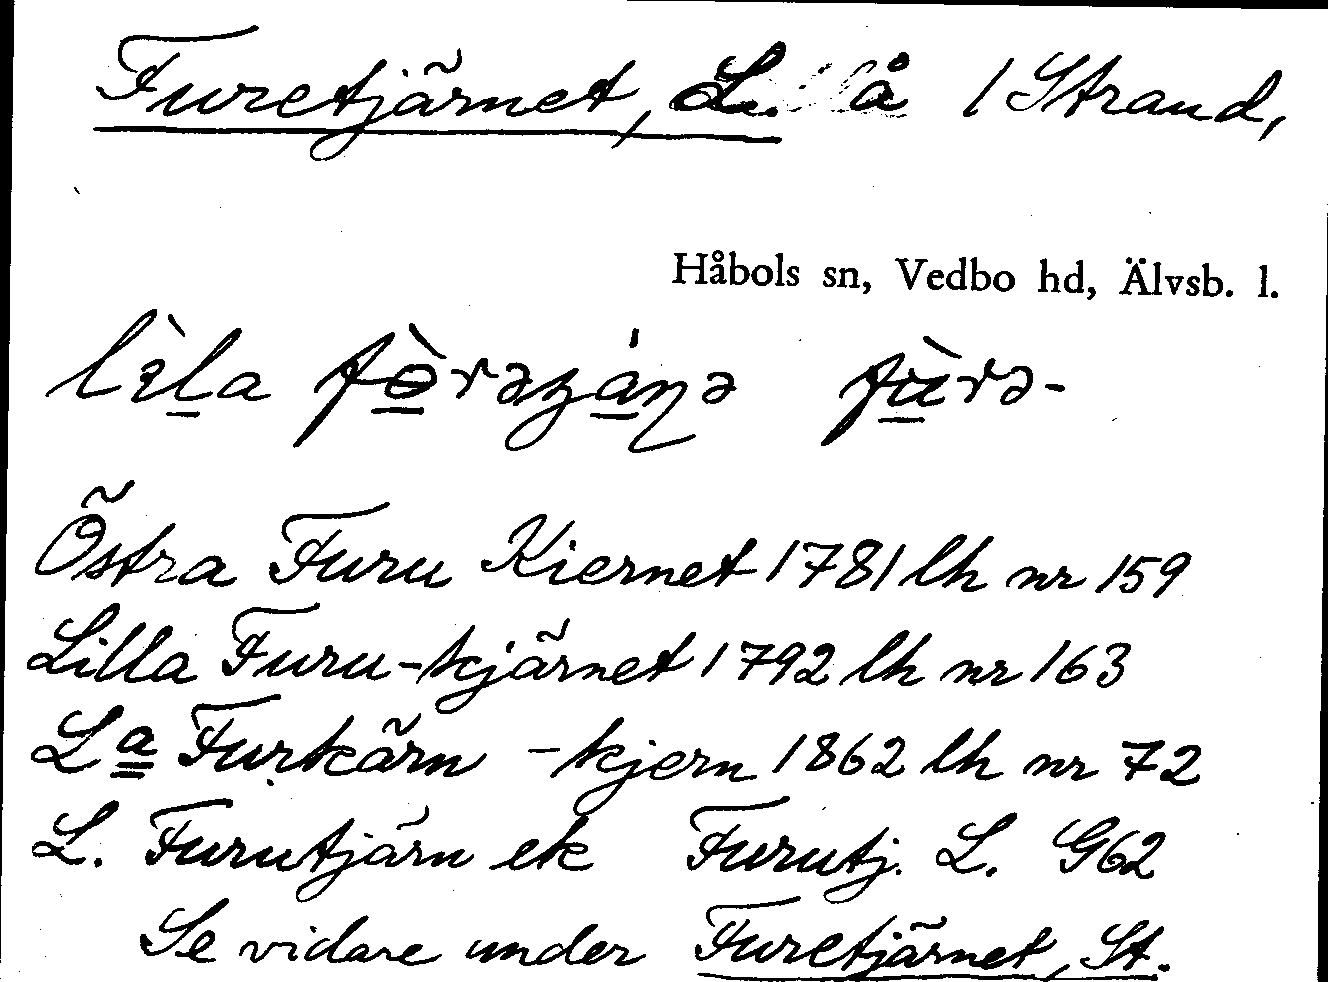 Furetjärnet, L. å 1 Strand,
Håbols sn, Vedbo hd, Älvsb. l.
lìla fòrəʒáŋə fùrə-
Östra Furu Kiernet 1781 lh nr 159
Lilla Furu-kjärnet 1792 lh nr 163
La Furkärn -kjern 1862 lh nr 72
L. Furutjärn ek Furutj. L. G62
Se vidare under Furetjärnet, St.